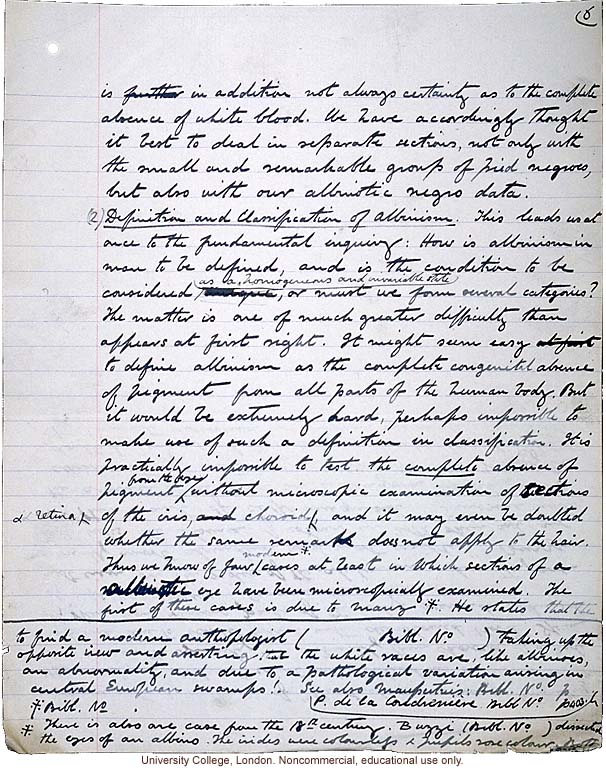 6
is further in addition not always certainty as to the complete
absence of white blood. We have accordingly thought
it best to deal in separate sections, not only with
the small and remarkable group of pied negroes,
but also with our albinotic negro data.
(2) Definition and Classification of albinism. This leads us at
once to the fundamental inquiry: How is albinism in
man to be defined, and is the condition to be
as a homogeneous and invariable state
considered, or must we form several categories?
The matter is one of much greater difficulty than
appears at first sight. It might seem easy at first
to define albinism as the complete congenital absence
of pigment from all parts of the human body. But
it would be extremely hard, perhaps impossible to
make use of such a definition in classification. It is
practically impossible to test the complete absence of
from the eye
pigment without microscopic examination of sections
& retina of the iris, and choroid, and it may even be doubted
whether the same remark does not apply to the hair.
modern *
Thus we know of few cases at least in which sections of a
eye have been microscopically examined. The
first of these cases is due to Manz *. He states that the
to find a modern anthropologist ( Bibl. No ) taking up the
opposite view and asserting that the white races are, like albinoes,
an abnormality, and due to a pathological variation arising in
central European swamps! See also Maupertuis: Bibl. No. p
* Bibl. No P. de la Condreniere Bibl No
* There is also one case from the 18th century. Buzzi (Bibl. No ) dissected
the eyes of an albino. The irides were colourless & pupils rose colour.
University College, London. Noncommercial, educational use only.